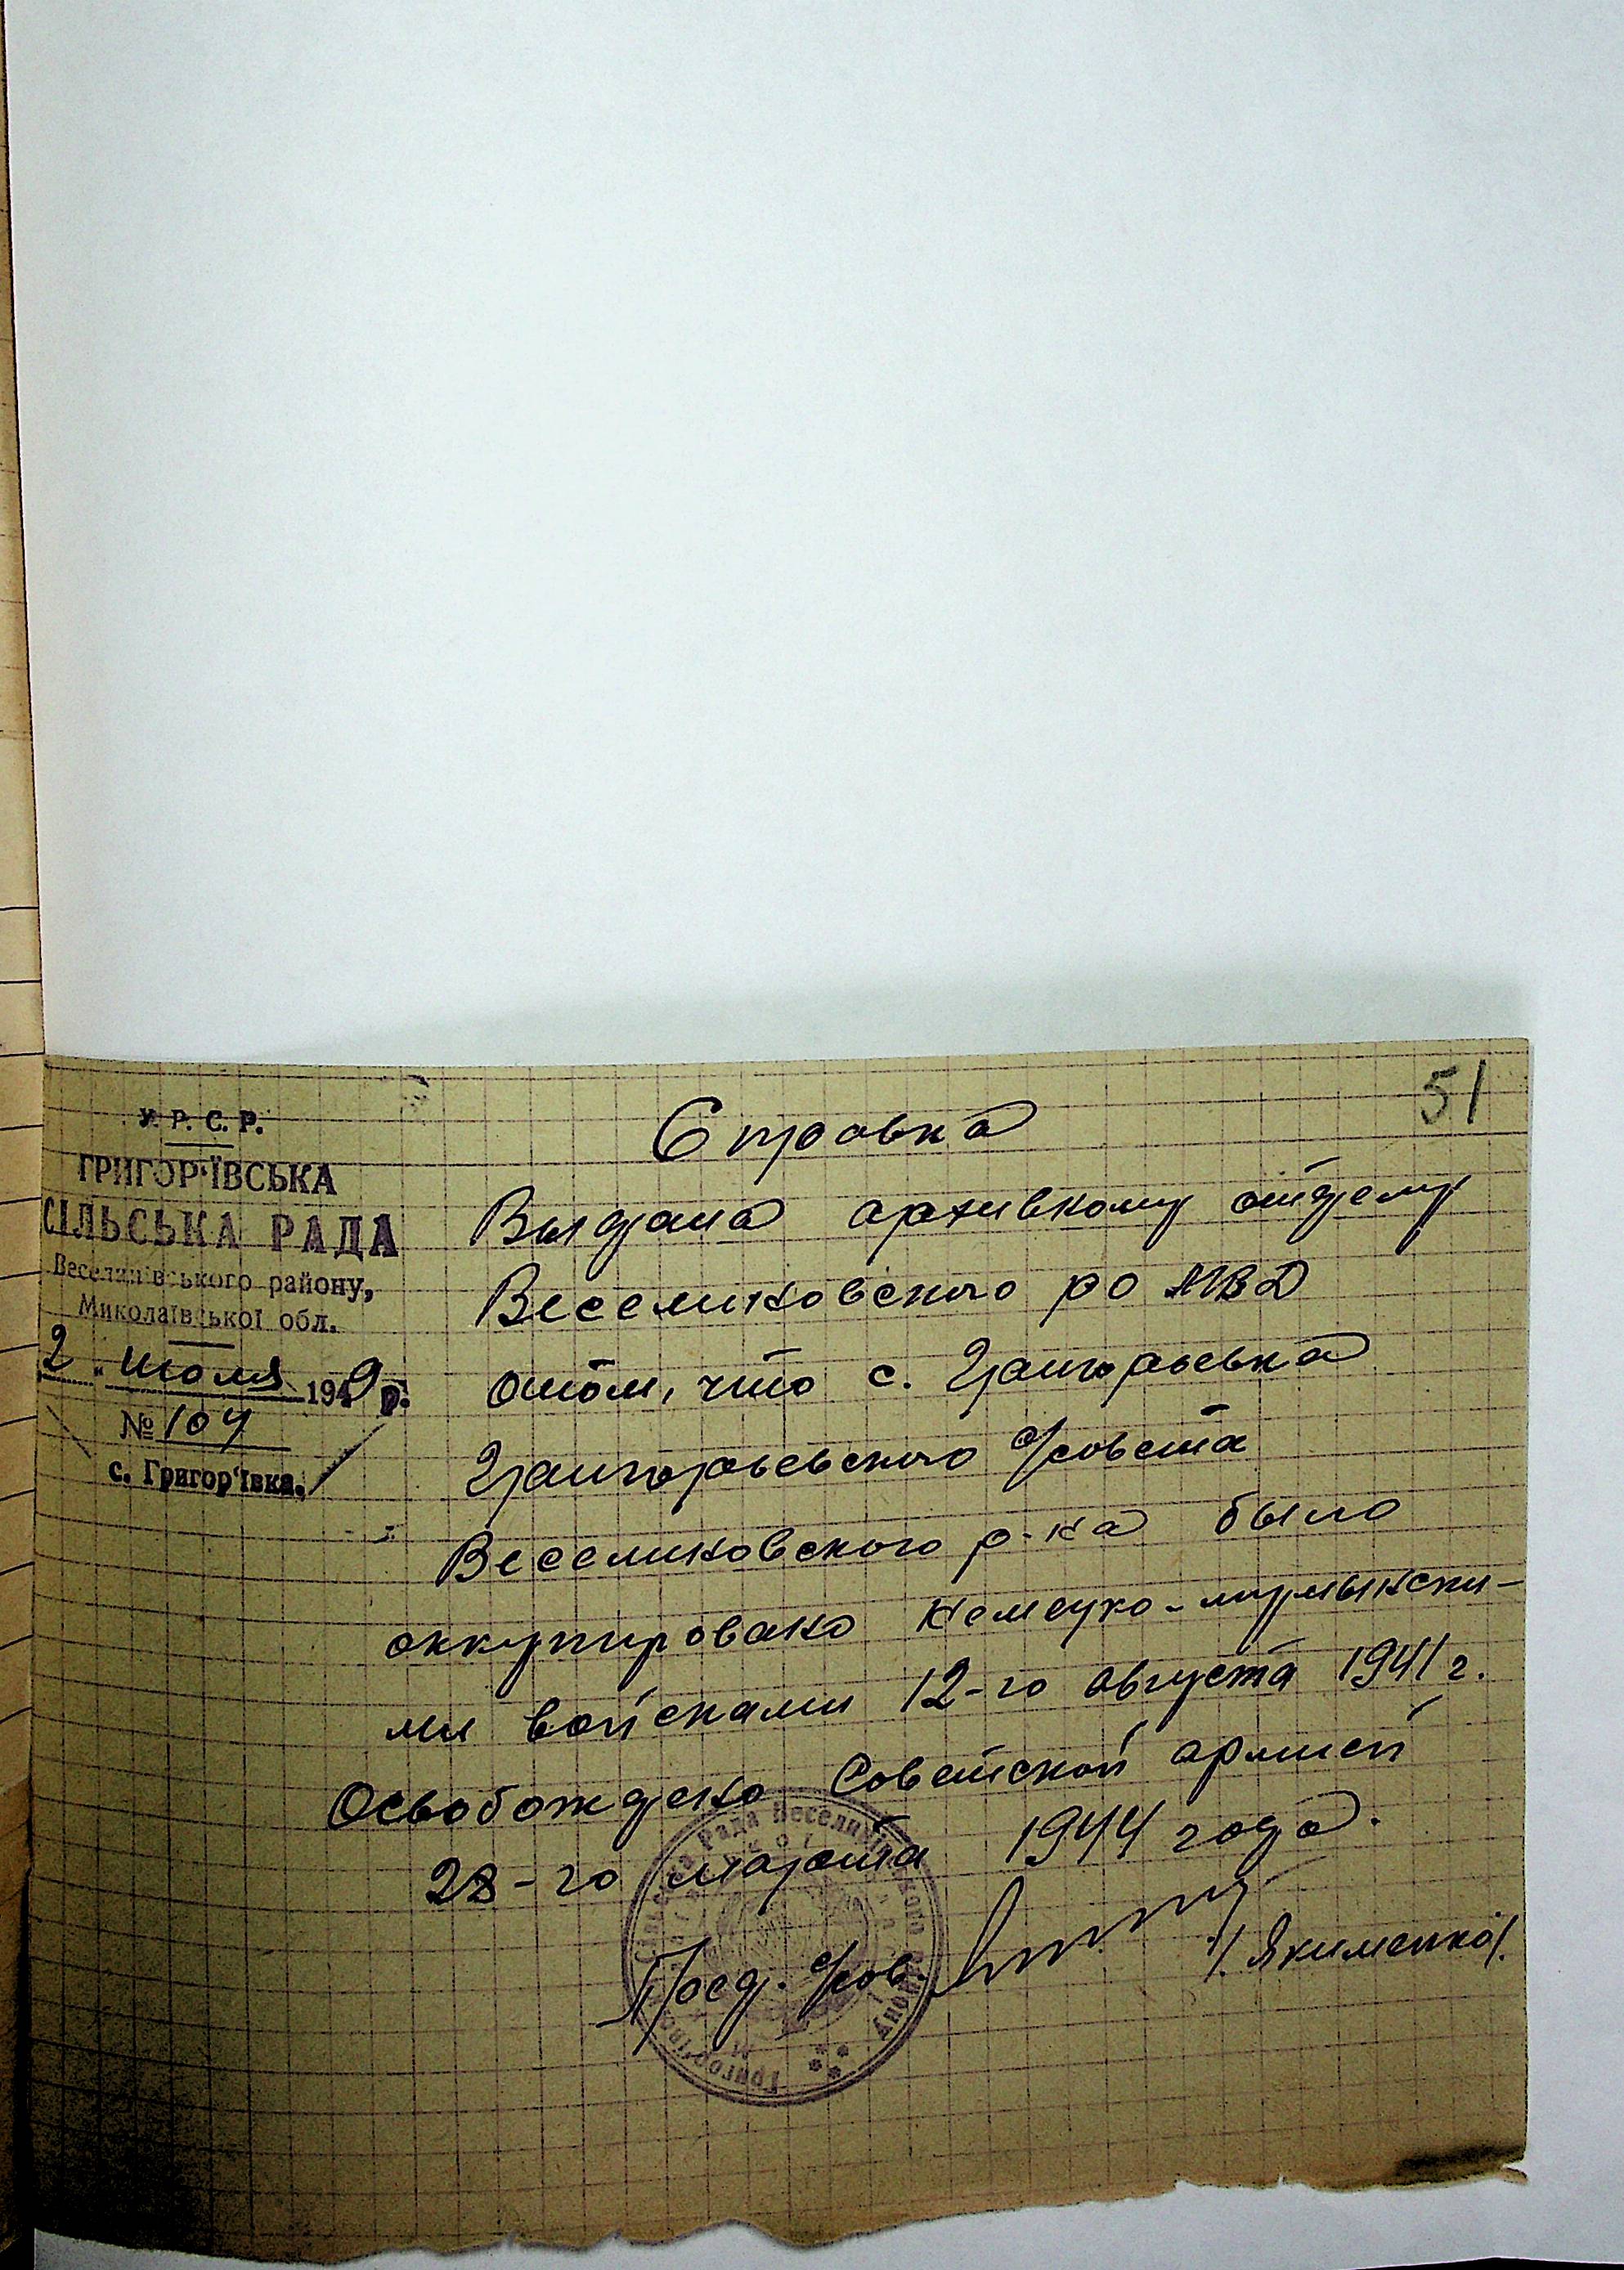 51
У. Р. С. Р.
ГРИГОР'ЇВСЬКА
СІЛЬСЬКА РАДА
Веселинівського району,
Миколаївської обл.
2 июля 1949 р.
№ 104
с. Григор'ївка.
Справка
Выдана архивному отделу
Веселиновского РО МВД
отом, что с. Григорьевка
Григорьевского с/совета
Веселиновского р-на было
оккупировано немецко-румынски-
ми войсками 12-го августа 1941 г.
Освобождено Советской армией
28-го марта 1944 года.
Пред. с/сов. /Якименко/.
Григор'ївська Сільська Рада Веселинівського району